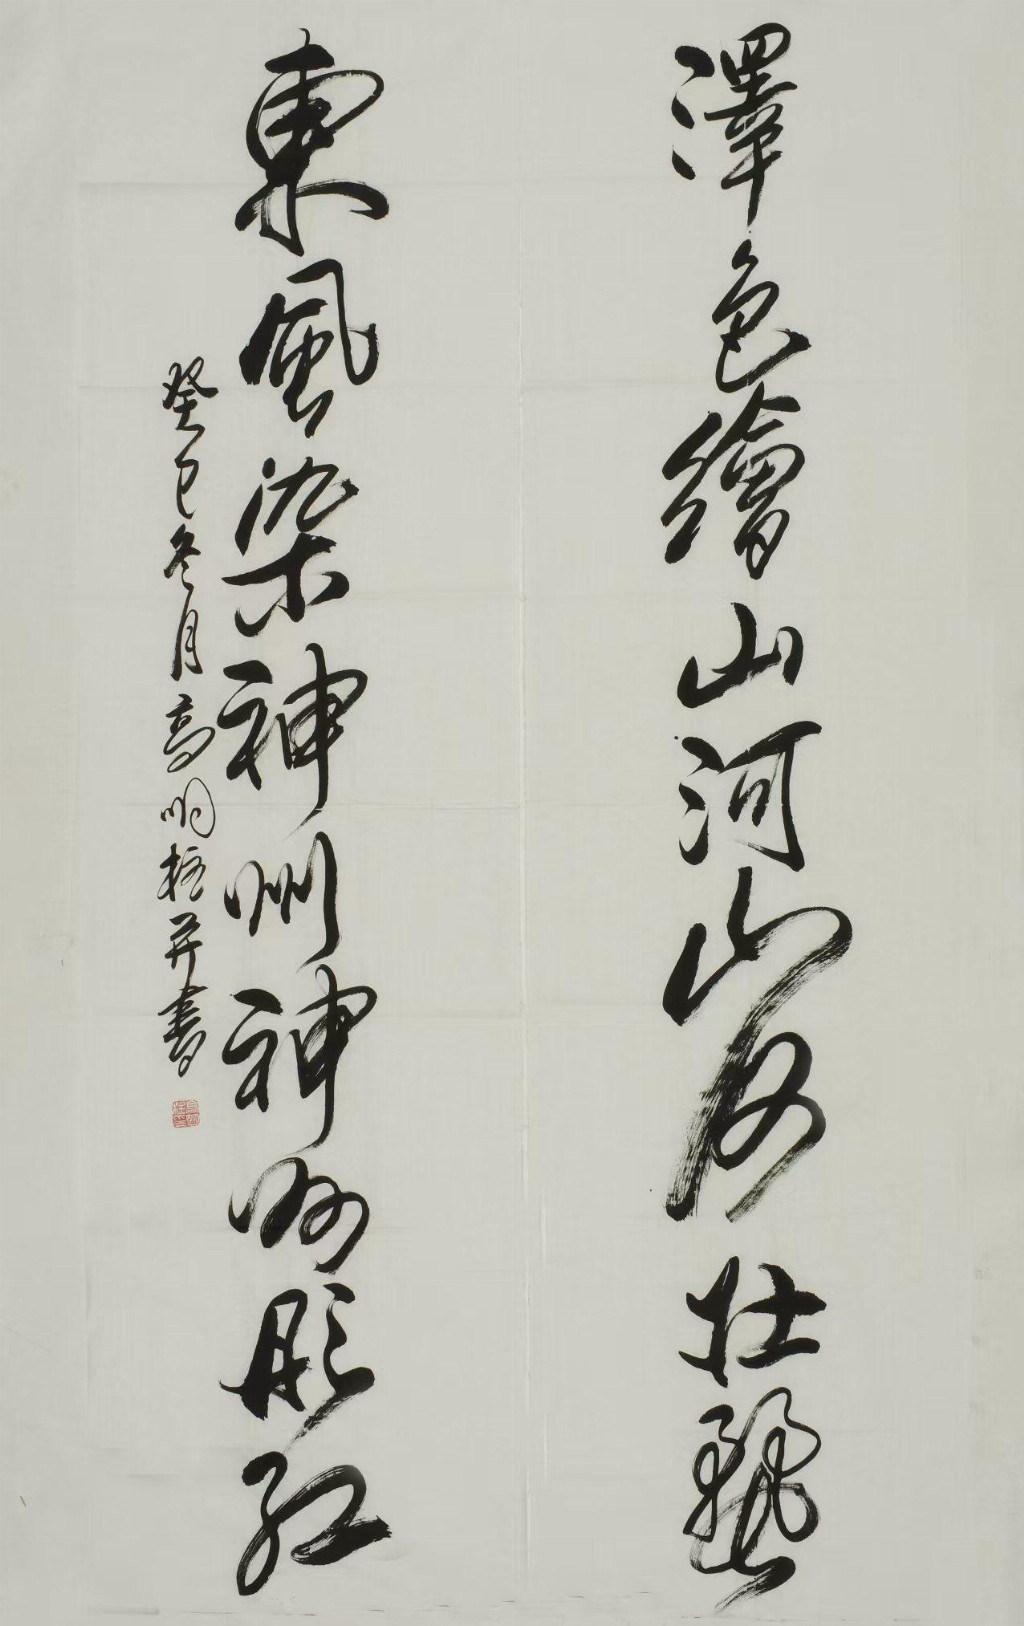 澤色繪山河山河壯藝
東風染神州神州彤紅
癸巳冬月高明并書